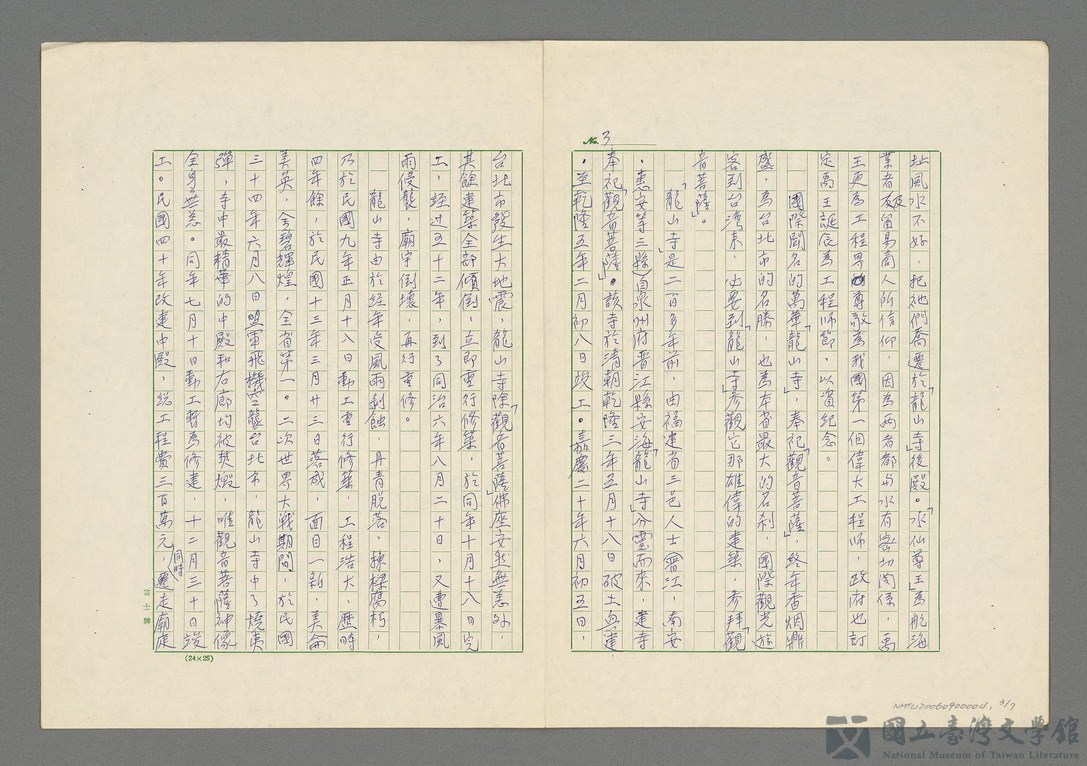 No. 3
址風水不好，把祂們喬遷於「龍山寺」後殿。「水仙尊王」為航海
業者及貿易商人所信仰，因為兩者都與水有密切関係，禹
王更為工程界尊敬為我國第一個偉大工程師，政府也訂
定禹王誕辰為工程師節，以資紀念。
國際聞名的萬華「龍山寺」，奉祀「觀音菩薩」，終年香烟鼎
盛，為台北市的名勝，也為本省最大的名刹，國際觀光遊
客到台灣來，必要到「龍山寺」參觀它那雄偉的建築，參拜「觀
音菩薩」。
「龍山寺」是二百多年前，由福建省三邑人士（晋江，南安
，惠安等三縣）自泉州府晋江縣安海「龍山寺」分靈而來，建寺
奉祀「觀音菩薩」。該寺於清朝乾隆三年五月十八日破土興建
，至乾隆五年二月初八日竣工。嘉慶二十年六月初五日，
台北市發生大地震，龍山寺除「觀音菩薩」佛座安然無恙外，
其餘建築全部傾倒，立即重行修築，於同年十月十八日完
工，經过五十二年，到了同治六年八月二十日，又遭暴風
雨侵襲，廟宇倒壞，再行重修。
龍山寺由於經年受風雨剝蝕，丹青脫落，棟樑腐朽，
乃於民國九年正月十八日動工重行修築，工程浩大，歷時
四年餘，於民國十三年三月廿三日落成，面目一新，美侖
美奐，金碧輝煌，全省第一。二次世界大戰期間，於民國
三十四年六月八日盟軍飛機空襲台北市，龍山寺中了燒夷
彈，寺中最精華的中殿和右廊均被焚燬，唯觀音菩薩神像
全身無恙。同年七月十日動工暫為修建，十二月三十日竣
工。民國四十年改建中殿，總工程費三百萬元，同時遷走廟庭
富士牌
(24×25)
NMTL20060900004, 3/7
國立臺灣文學館
National Museum of Taiwan Literature